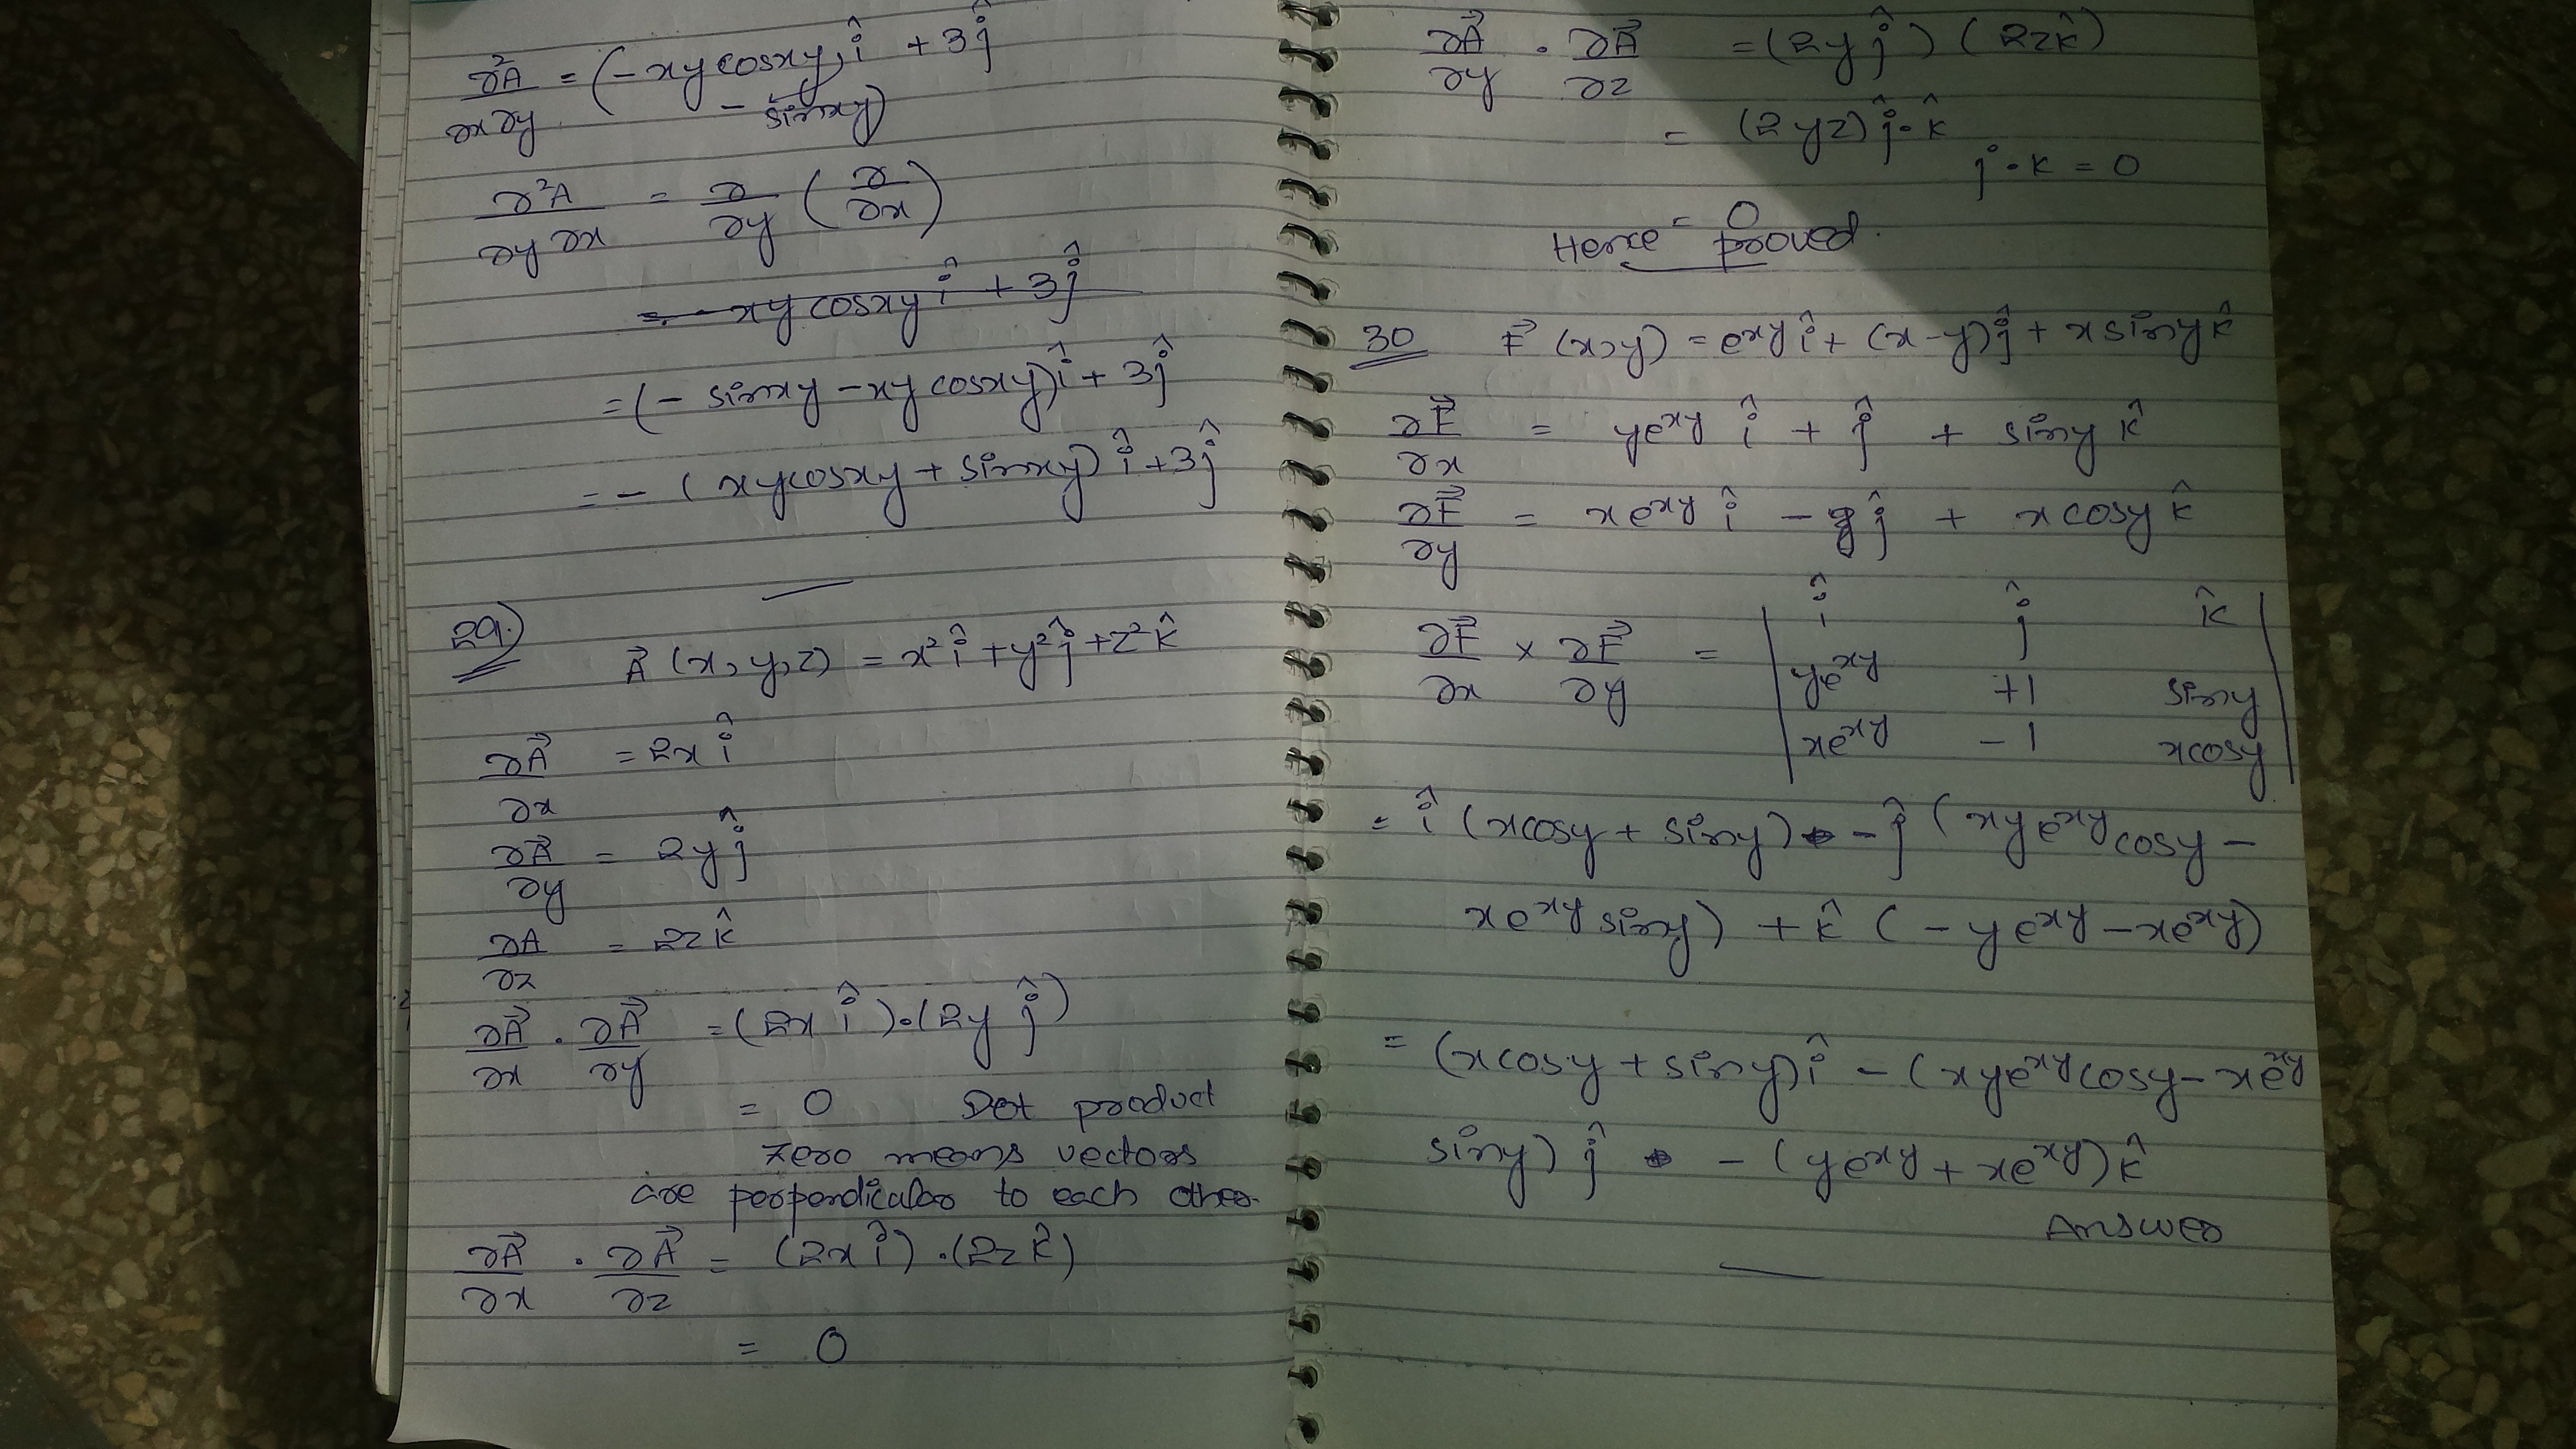 ∂²A/∂x∂y = (-xy cosxy, î + 3ĵ
- sinxy)
∂²A/∂y∂x = ∂/∂y (∂/∂x)
= -xy cosxy î + 3ĵ
= (- sinxy - xy cosxy) î + 3ĵ
= - (xycosxy + sinxy) î + 3ĵ
29.)
A⃗ (x, y, z) = x² î + y² ĵ + z² k̂
∂A⃗/∂x = 2x î
∂A⃗/∂y = 2y ĵ
∂A/∂z = 2z k̂
∂A⃗/∂x . ∂A⃗/∂y = (2x î).(2y ĵ)
= 0 Dot product
zero means vectors
are perpendicular to each other.
∂A⃗/∂x . ∂A⃗/∂z = (2x î).(2z k̂)
= 0
∂A⃗/∂y . ∂A⃗/∂z = (2y ĵ) (2z k̂)
= (2yz) ĵ.k̂
j.k = 0
= 0
Hence proved.
30 F⃗ (x,y) = e^xy î + (x-y) ĵ + x siny k̂
∂F⃗/∂x = ye^xy î + ĵ + siny k̂
∂F⃗/∂y = xe^xy î - ĵ + x cosy k̂
∂F⃗/∂x × ∂F⃗/∂y = | î ĵ k̂ |
| ye^xy +1 siny |
| xe^xy -1 xcosy |
= î (xcosy + siny) - ĵ (xye^xy cosy -
xe^xy siny) + k̂ (- ye^xy - xe^xy)
= (xcosy + siny) î - (xye^xy cosy - xe^xy
siny) ĵ - (ye^xy + xe^xy) k̂
Answer